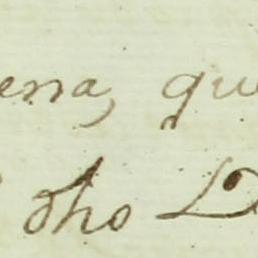 ena, qu
dho D